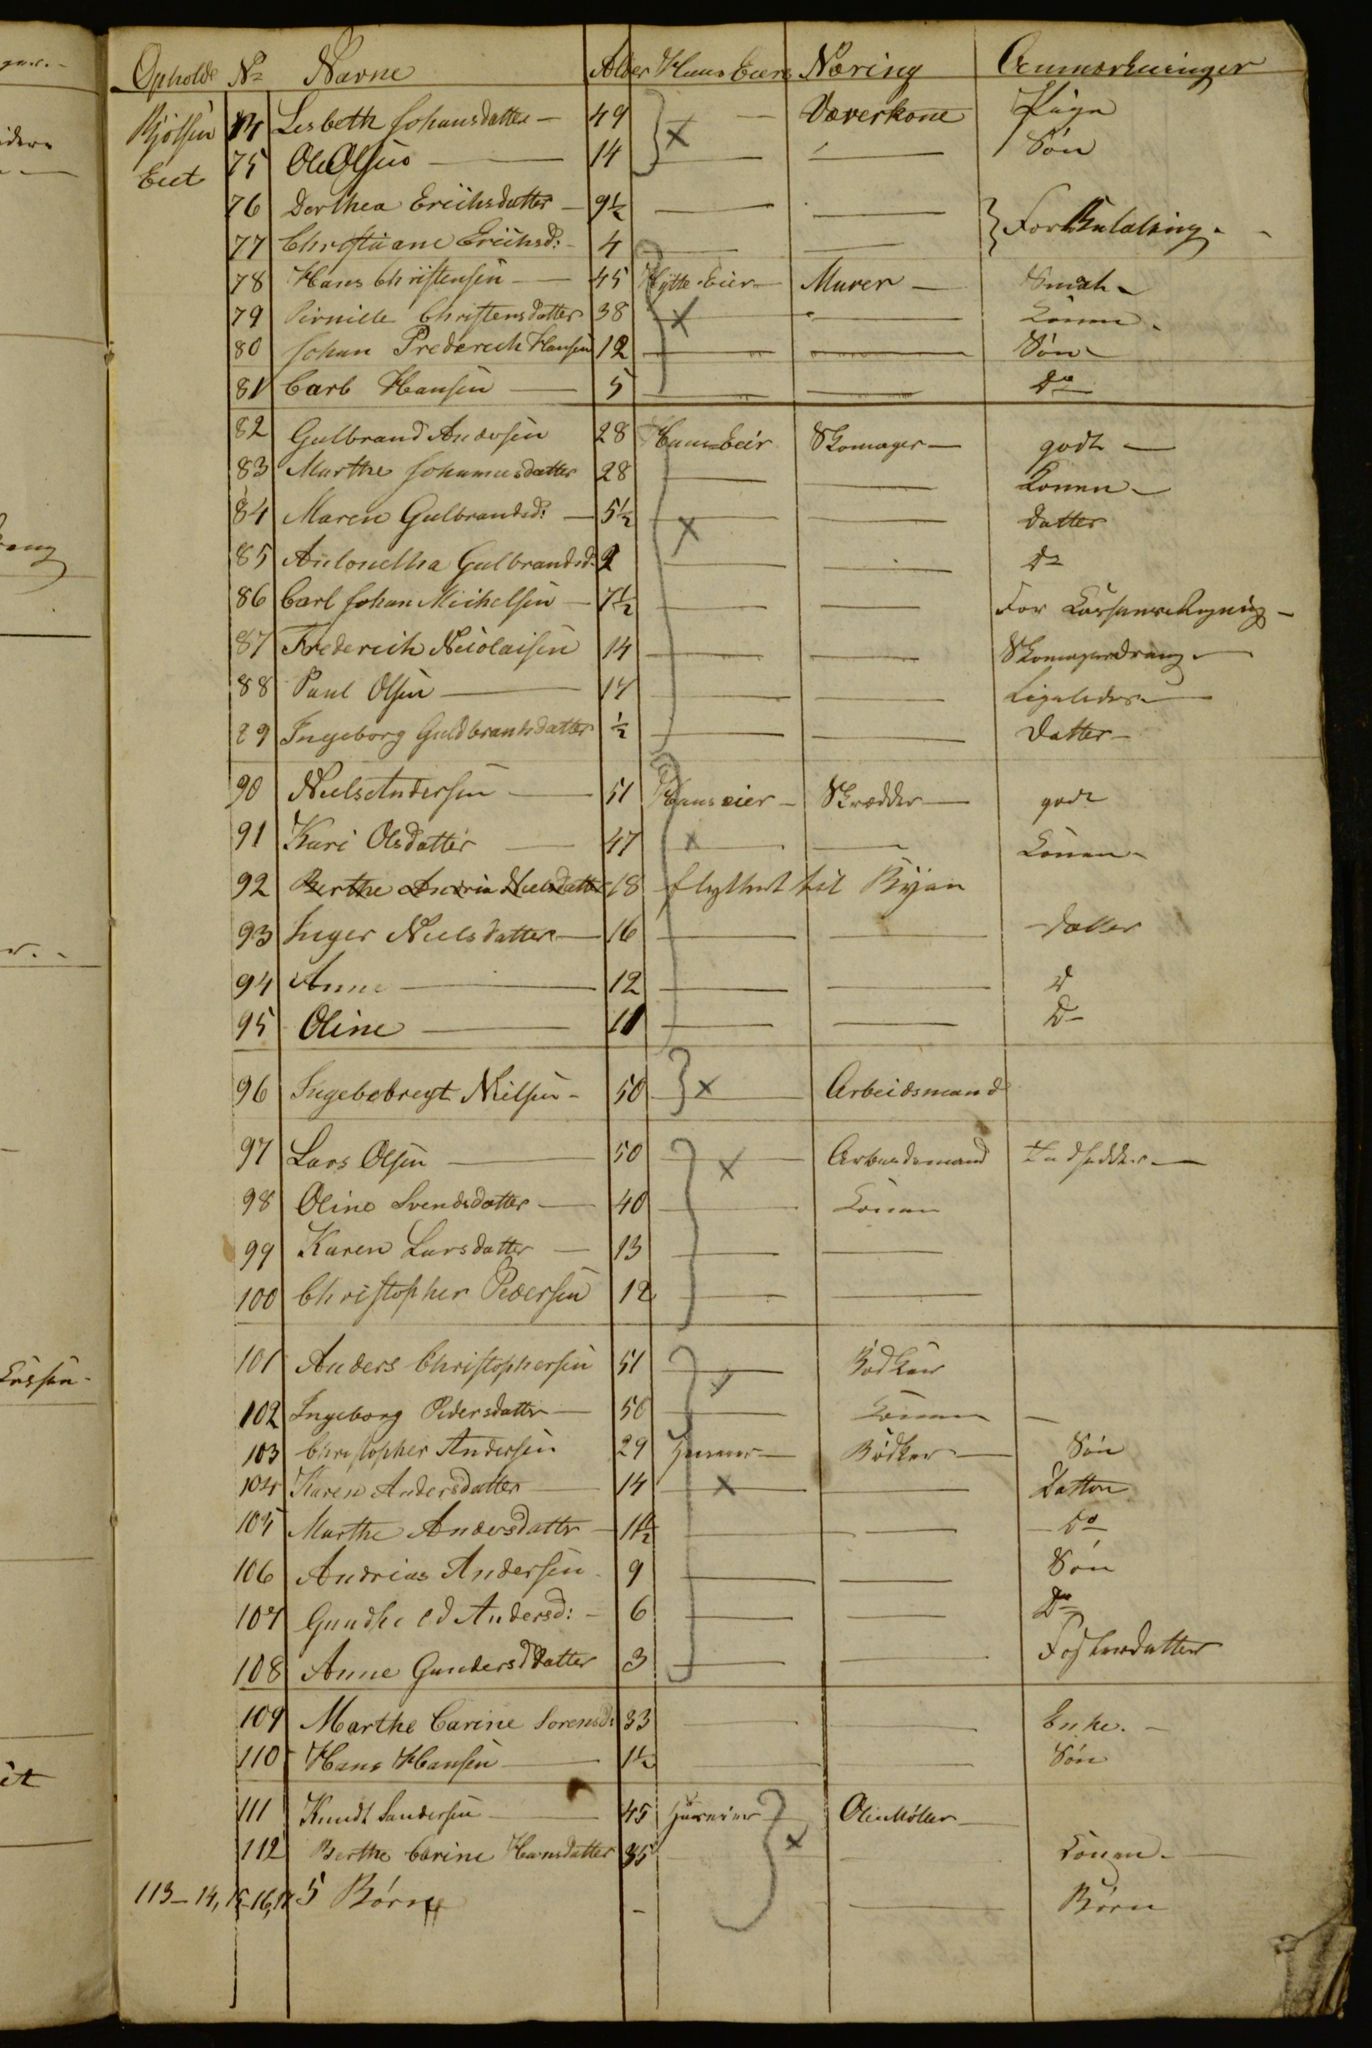 Ophold No Navne Alder Huus Eiere Næring Anmærkninger
Bjølsen 74 Lisbeth Johansdatter 49 Væverkone Pige
Eiet 75 Ole Olsen 14 Søn
76 Dorthea Erichsdatter 9½
77 Christiane Erichsd: 4 For Betaling
78 Hans Christensen 45 Hytte Eier Murer Smaat
79 Pernille Christensdatter 38 Konen
80 Johan Frederich Hansen 12 Søn
81 Carl Hansen 5 Do
82 Gulbrand Andersen 28 Huus Eier Skomager godt
83 Marthe Johannesdatter 28 Konen
84 Maren Gulbrandsd: 5½ Datter
85 Antonetha Gulbrandsd: 2 Do
86 Carl Johan Michelsen 7½ For Kassens Regning
87 Frederich Nicolaisen 14 Skomagerdreng
88 Paul Olsen 17 Ligeledes
89 Ingeborg Guldbrandsdatter ½ Datter
90 Niels Andersen 51 Huuseier Skrædder godt
91 Kari Olsdatter 47 Konen
92 Berthe Andria Nielsdatter 18 flyttet til Byen
93 Inger Nielsdatter 16 Datter
94 Anne 12 D
95 Oline 11 D
96 Ingebobregt Nielsen 50 Arbeidsmand
97 Lars Olsen 50 Arbeidsmand Indsidder
98 Oline Svendsdatter 40 Konen
99 Karen Larsdatter 13
100 Christopher Pedersen 12
101 Anders Christophersen 51 Bødker
102 Ingeborg Pedersdatter 50 Konen
103 Christopher Andersen 29 Huseier Bødker Søn
104 Karen Andersdatter 14 Datter
105 Marthe Andersdatter 11½ Do
106 Andrias Andersen 9 Søn
107 Andersd: 6 Do
108 Anne Gundersdatter 3 Fosterdatter
109 Marthe Carine Sorensd: 33 Enke
110 Hans Hansen 1½ Søn
111 Knudt Sandersen 45 Huseier Oliemøller
112 Berthe Carine Hansdatter 35 Konen
113-14, 15-16, 17 5 Børn - Børn